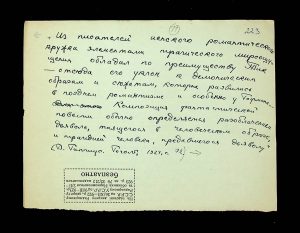 223
„Из писателей иенского романтического
кружка элементами трагического мироощу-
щения обладал по преимуществу Тик
— отсюда его уклон к демоническим
образам и сюжетам, которая развилась
в позднем романтизме и особенно у Гофмана.
Композиция фантастической
повести обычно определяется разоблачением
дьявола, таящегося в человеческом образе,
и трагедией человека, предавшегося дьяволу"
(В. Гиппиус. Гоголь, 1924, с.
БЕСПЛАТНО